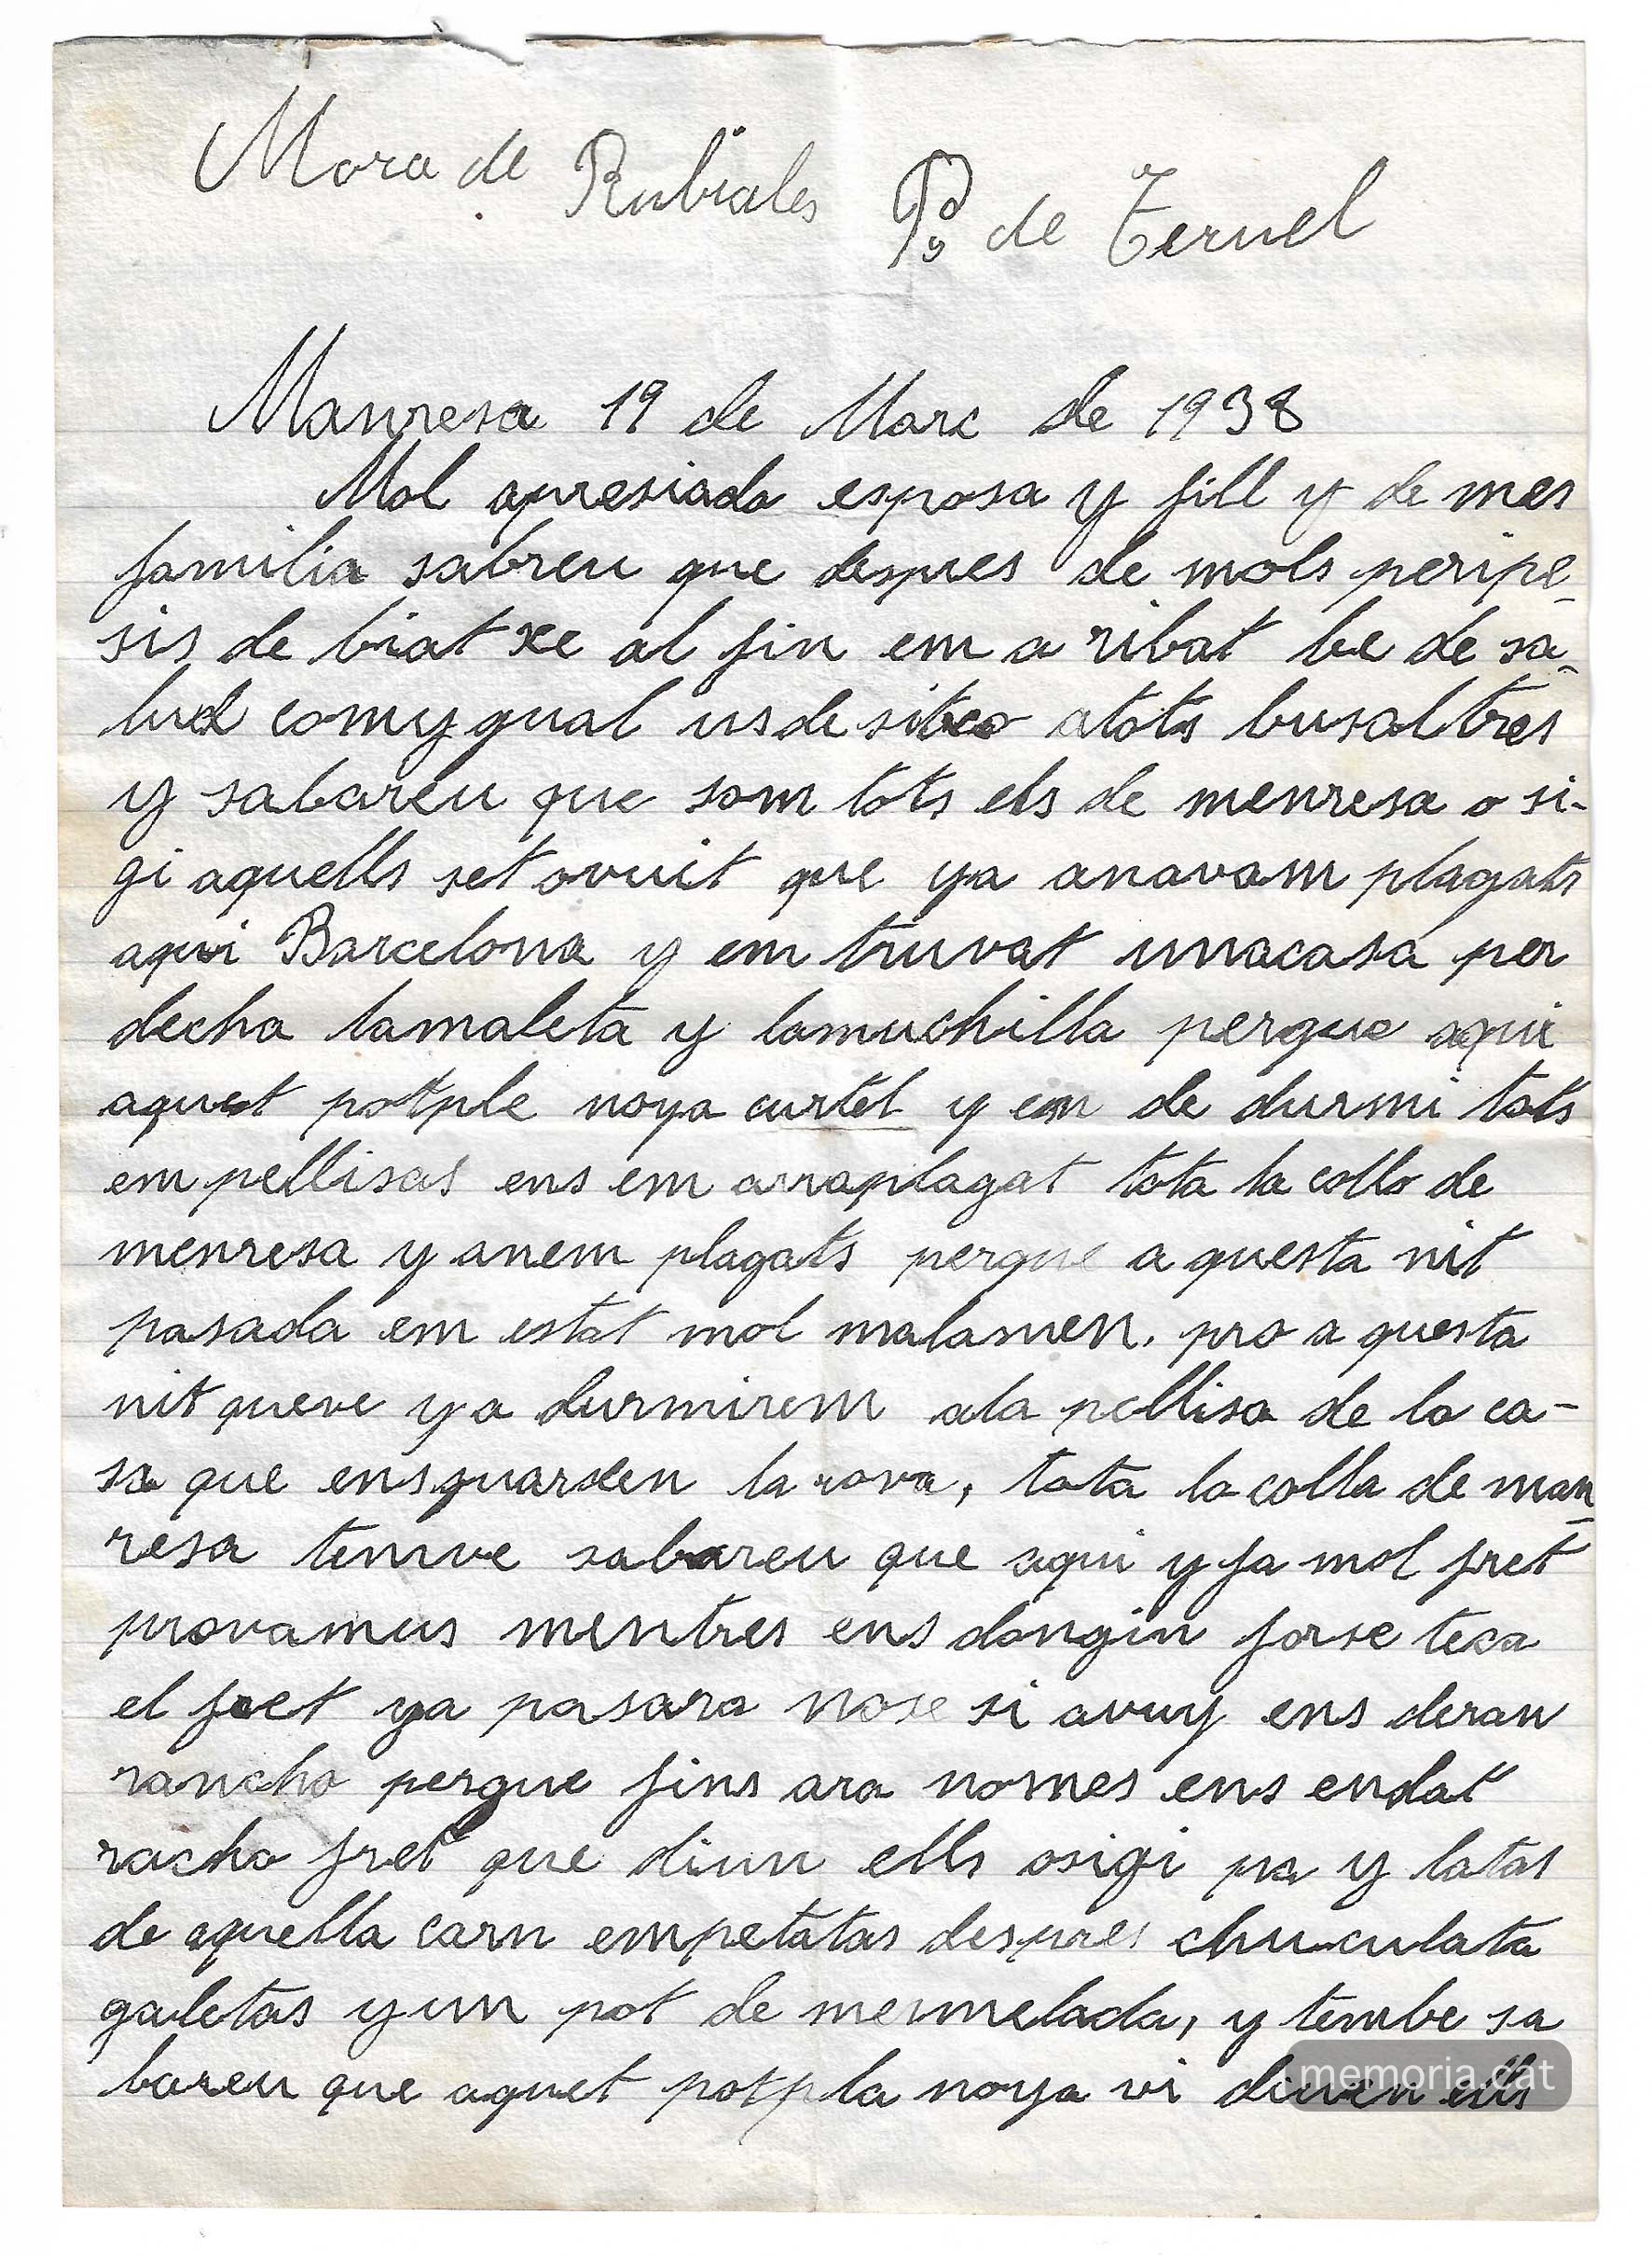 Mora de Rubiales Pº de Teruel
Manresa 19 de Març de 1938
Mol apresiada esposa y fill y de mes
familia sabreu que despres de mols peripe-
sis de biat xe al fin em a ribat be de sa-
lud comygual usdesitco atots busaltres
y sabareu que som tots els de menresa o si-
gi aquells set ovuit que ya anavam plagats
aqui Barcelona y em truvat unacasa per
decha lamaleta y lamuchilla perque aqui
aquet potple noya curtel y em de durmi tots
em pellisas ens em arraplagat tota la colla de
menresa y anem plagats perque a questa nit
pasada em estat mol malamen, pro a questa
nit queve ya durmirem ala pellisa de la ca-
sa que ensguarden la rova, tota la colla de man-
resa temve sabareu que aqui y fa mol fret
provamus mentres ens dongin forse teca
el fret ya pasara nose si avuy ens deran
rancho perque fins ara nomes ens endat
racho fret que diun ells osigi pa y latas
de aquella carn empetatas despres chuculata
galetas yun pot de mermelada, y tembe sa
bareu que aquet potpla noya vi diuen ells
memoria.cat